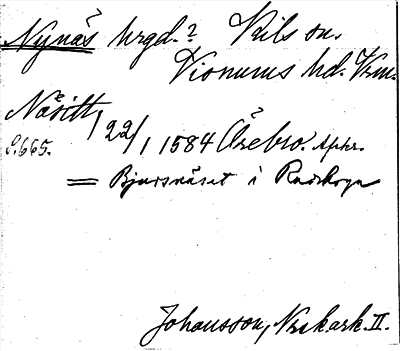 Nynäs hrgd.? Kils sn.
Vismums hd. Vrm.
Näsitt, 22/1 1584 Örebro. Aphr.
S. 665.
= Bjursnäset i Rudskoga
Johansson, Nrikark. II.